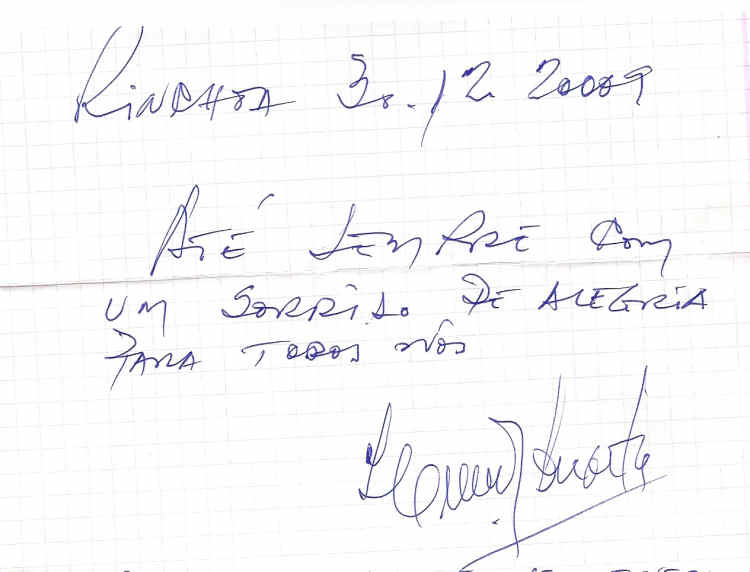 RINCHOA 30.12 20009
ATÉ SEMPRE COM
UM SORRISO DE ALEGRIA
PARA TODOS NÓS
Duarte